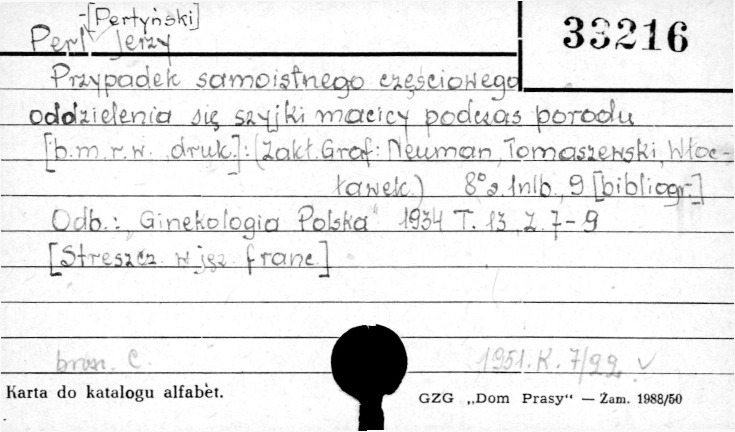 [Pertyński]
33216
Perl Jerzy
Przypadek samoistnego częściowego
oddzielenia się szyjki macicy podczas porodu
[b.m.r.w. druk.]: (Zakł. Graf: Neuman, Tomaszewski, Włoc-
ławek.) 8° s. 1nlb., 9 [bibliogr.]
Odb.: "Ginekologia Polska" 1934 T. 13 Z. 7-9
[Streszcz. w jęz. franc.]
brosz. C. 1951. K. 7/22 v
Karta do katalogu alfabet.
GZG „Dom Prasy“ — Zam. 1988/50